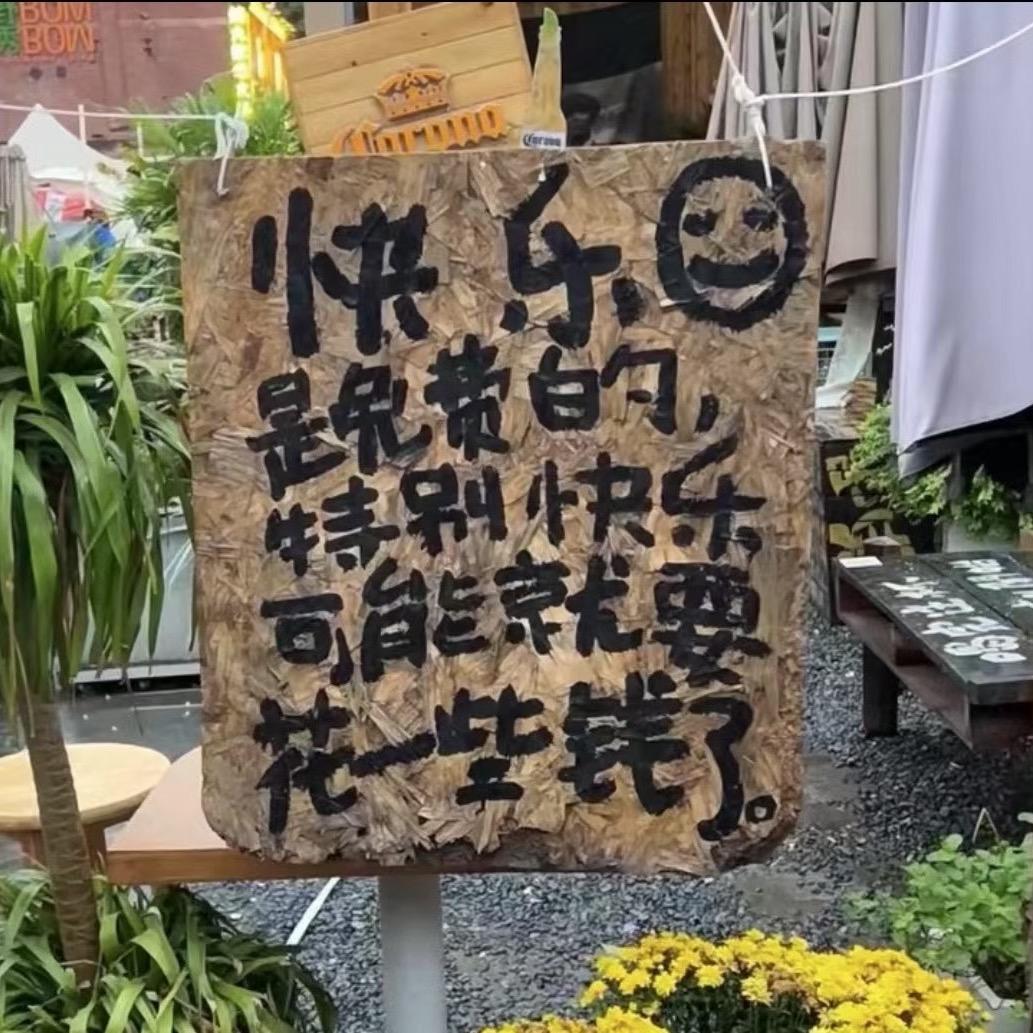 BOM
BOM
Corona
Corona
快乐
是免费的，
特别快乐
可能就要
花一些钱了。